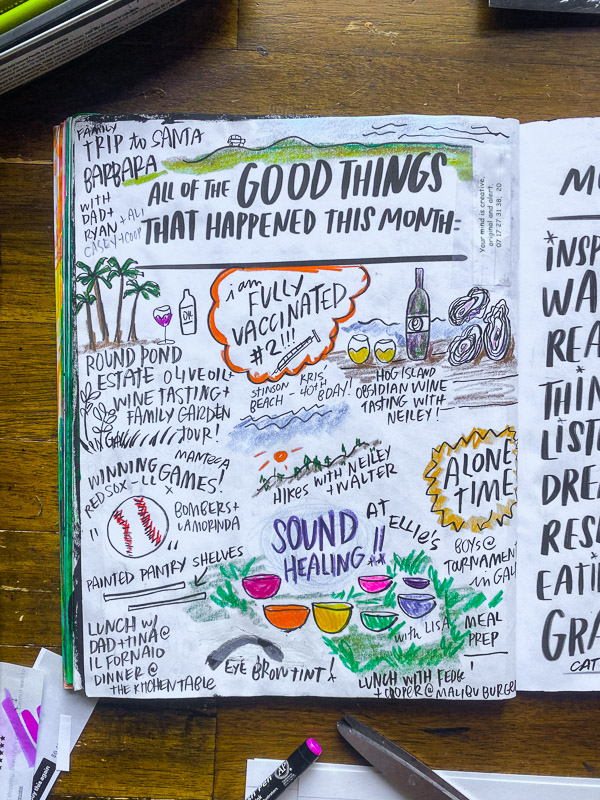 FAMILY
TRIP to SANTA
BARBARA
WITH
DAD +
RYAN + ALI
CASEY + COOP
ALL OF THE GOOD THINGS
THAT HAPPENED THIS MONTH:
Your mind is creative,
original and alert.
07 17 27 31 38, 20
i am
FULLY
VACCINATED
#2!!!
OIL
ROUND POND
ESTATE OLIVE OIL +
WINE TASTING +
FAMILY GARDEN
TOUR!
STINSON
BEACH -
KRIS
40TH
BDAY!
HOG ISLAND
OBSIDIAN WINE
TASTING WITH
NEILEY!
HIKES WITH NEILEY
+ WALTER
ALONE
TIME
WINNING GAMES!
MANTECA
RED SOX - LL +
BOMBERS +
LAMORINDA
SOUND
HEALING!!
AT
ELLIE'S
with LISA
BOYS @
TOURNAMENT
in GALT
PAINTED PANTRY SHELVES
MEAL
PREP
LUNCH W/
DAD + TINA @
IL FORNAIO
DINNER @
THE KITCHEN TABLE
EYE BROW TINT!
LUNCH WITH FEDGE
+ COOPER @ MALIBU BURGER
INSP
WA
REA
THIN
LIST
DRE
RES
EATI
GRA
CAT